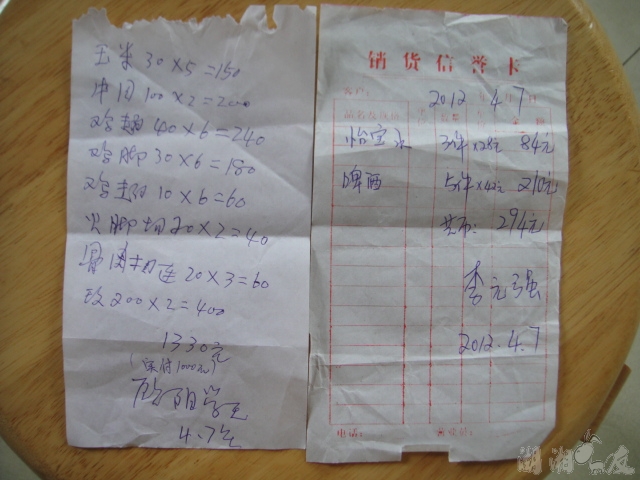 玉米 30×5=150
牛肉 100×2=200
鸡翅 40×6=240
鸡脚 30×6=180
鸡翅 10×6=60
火脚切 20×2=40
20×3=60
200×2=400
1330元
(实付1000元)
4.7号
销货信誉卡
客户:
2012年4月7日
品名及规格 金额
怡宝水 3件×28元 84元
啤酒 5件×42元 210元
共计: 294元
李元强
2012.4.7
电话:
湖湘 友